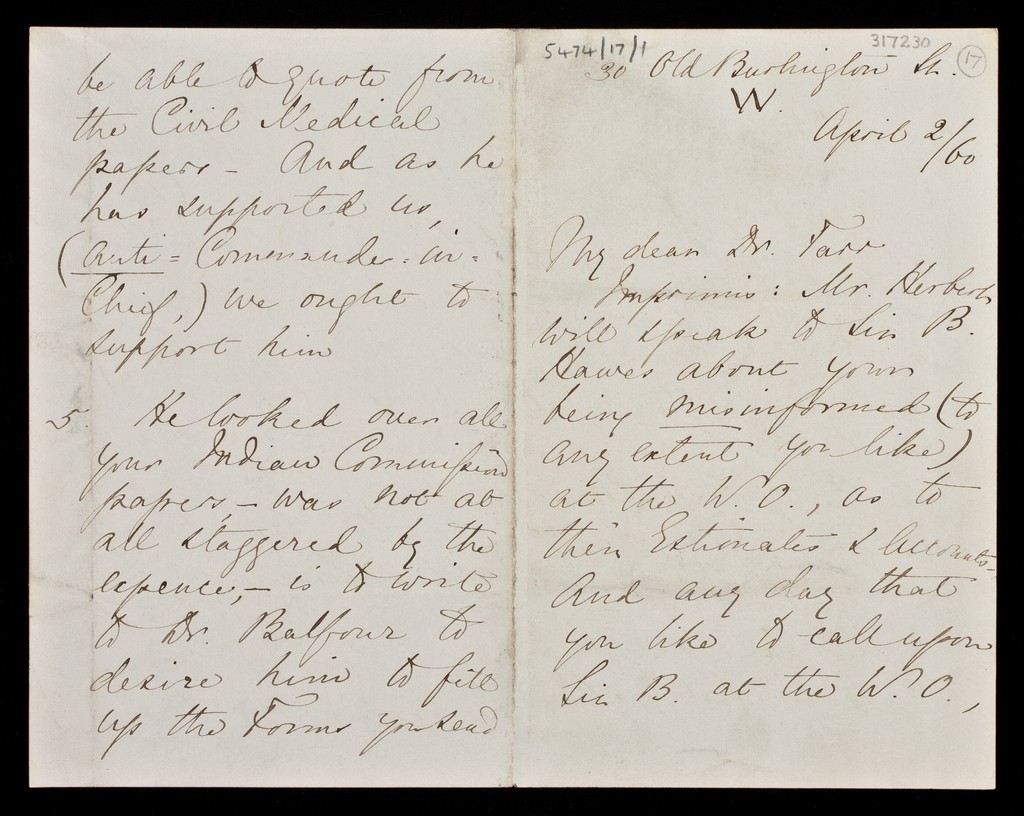 be able to quote from
the Civil Medical
papers - And as he
has supported us,
(anti = Commander-in-
Chief,) we ought to
support him
5. He looked over all
your Indian Commission
papers, - was not at
all staggered by the
expence, - is to write
to Dr. Balfour to
desire him to fill
up the Forms you send
5474/17/1
317230
17
30 Old Burlington St.
W.
April 2/60
My dear Dr. Farr
Imprimis: Mr. Herbert
will speak to Sir B.
Hawes about your
being misinformed (to
any extent you like)
at the W.O., as to
their Estimates & Accounts-
And any day that
you like to call upon
Sir B. at the W.O.,